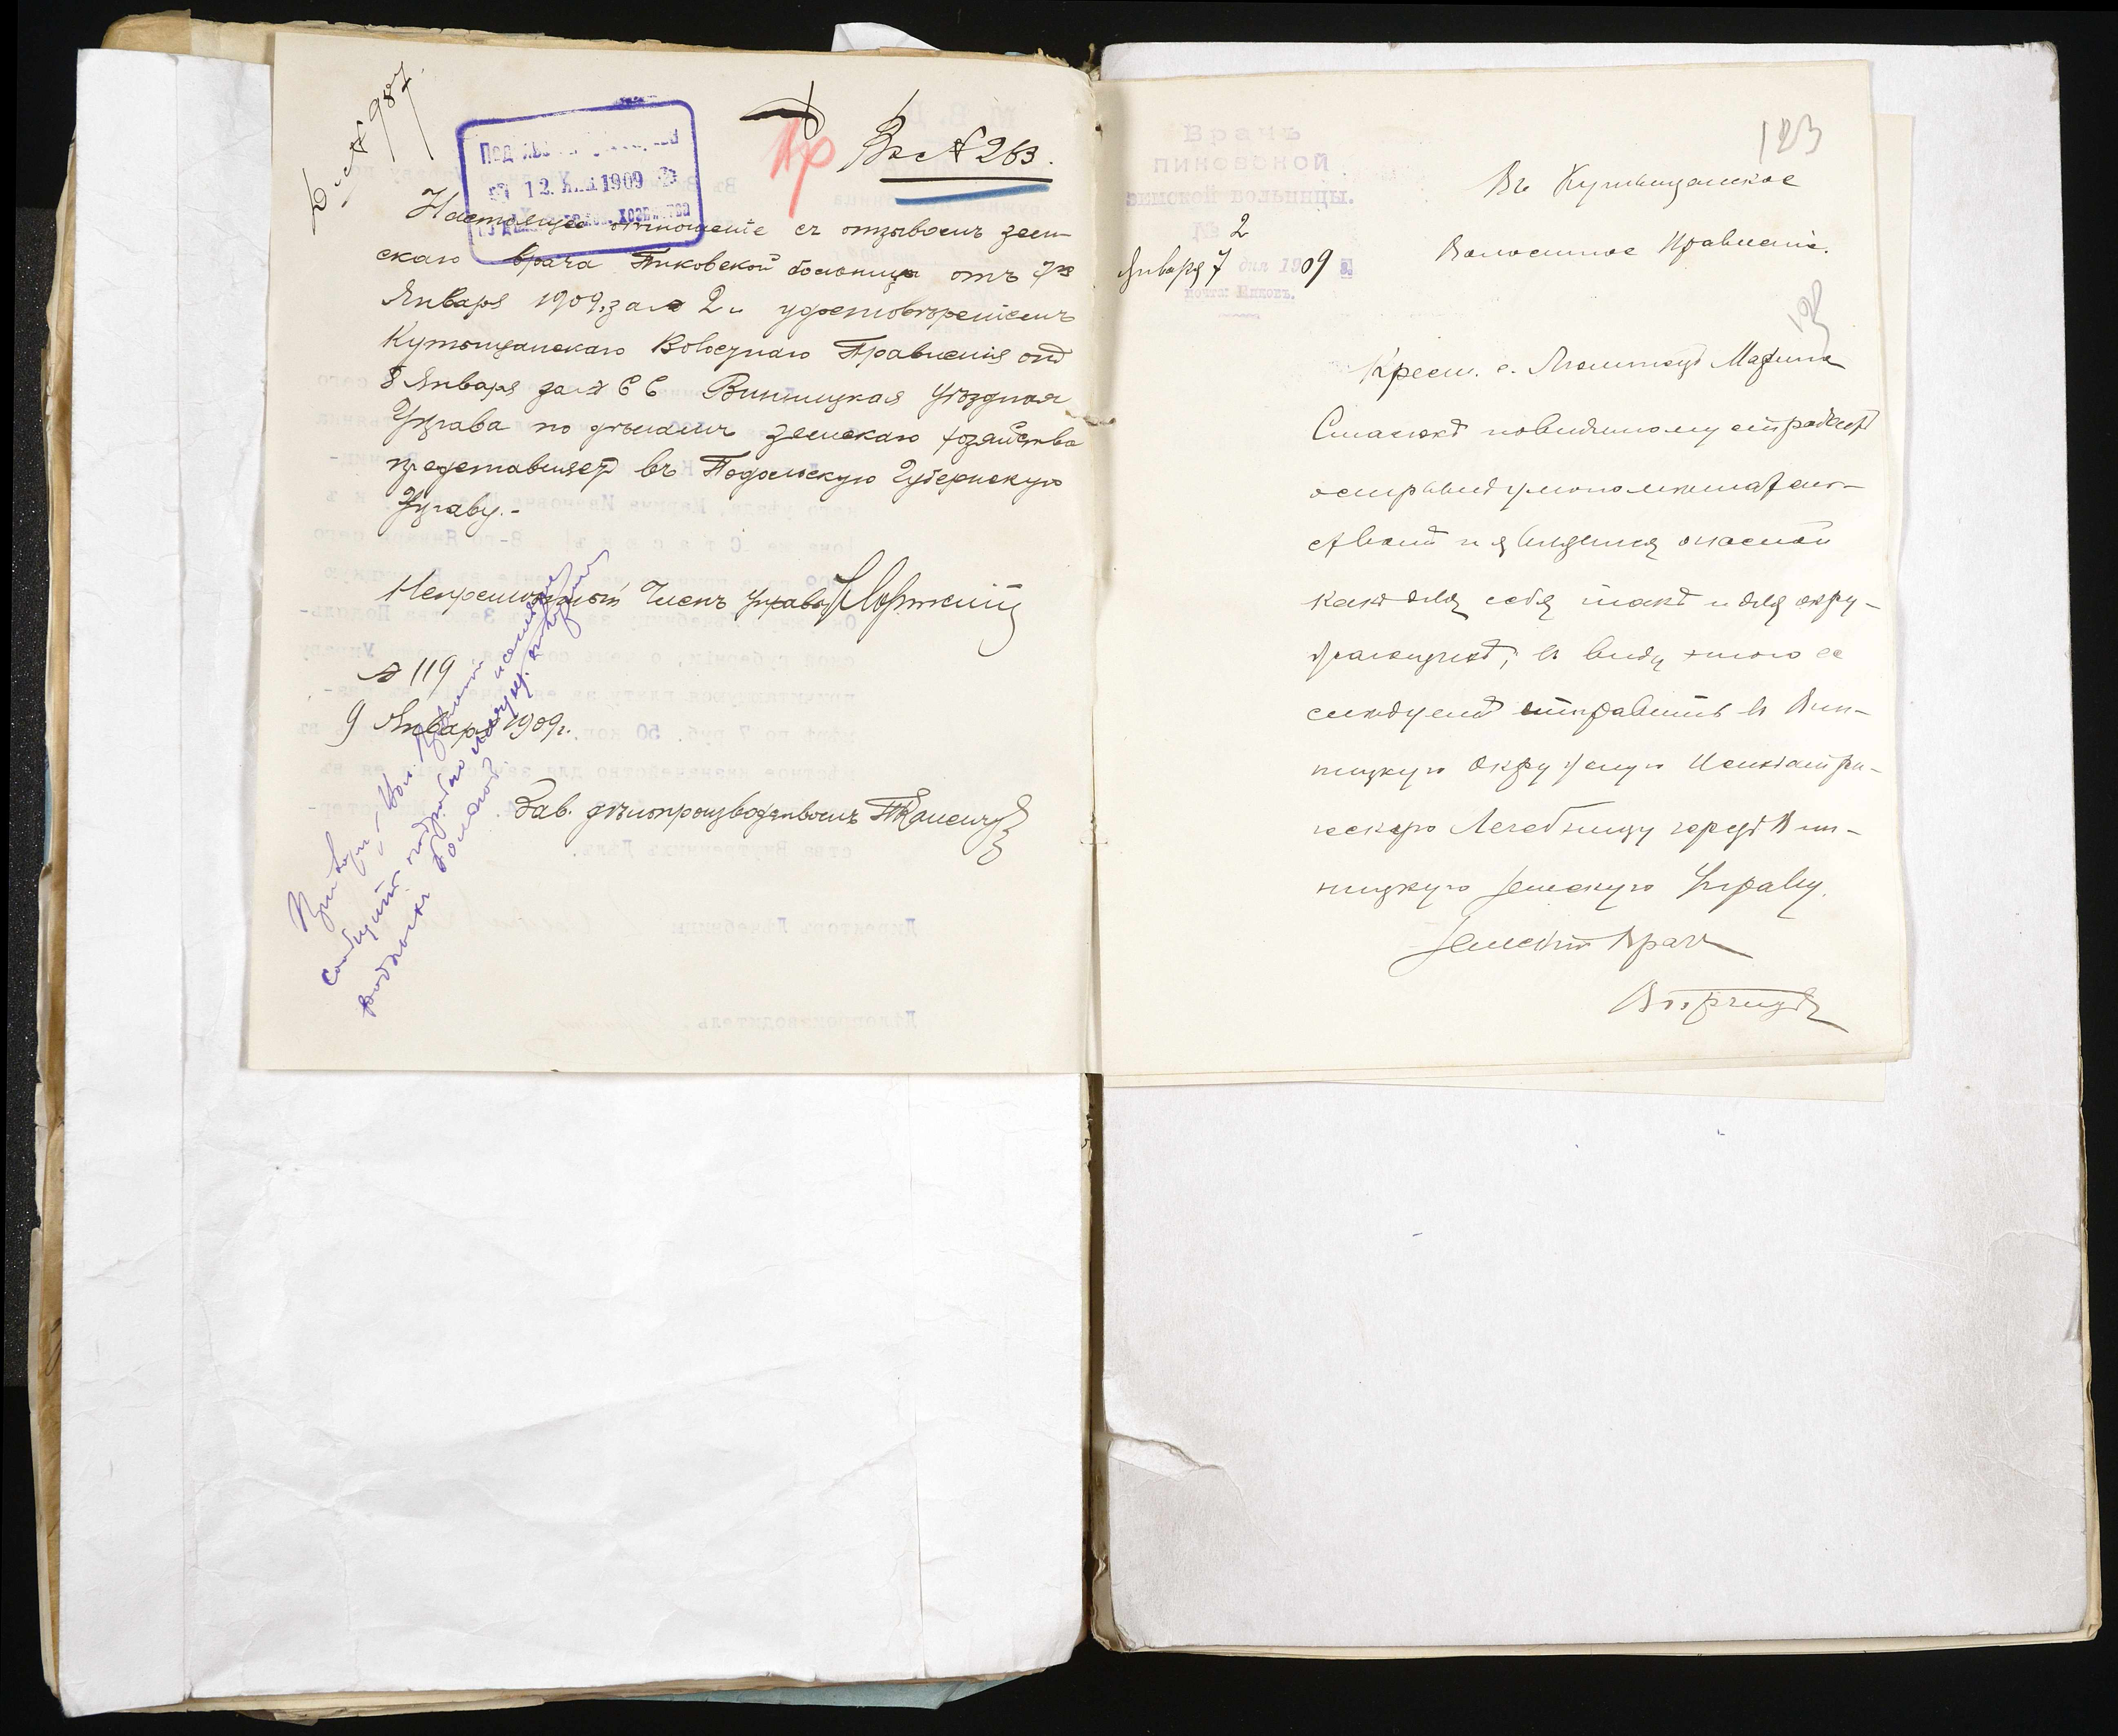 987
12. Янв. 1909
хозяйства
Вх № 263.
Настоящее отношеніе съ отзывомъ зем-
скаго врача Пиковской больницы отъ 7го
Января 1909 г. за № 2 и удостовѣреніемъ
Кутыщанскаго Волостнаго Правленія отъ
8 Января за № 66 Винницкая Уѣздная
Управа по дѣламъ земскаго хозяйства
представляетъ въ Подольскую Губернскую
Управу.-
Непремѣнный Членъ Управы
№ 119
9 Января 1909 г.
Зав. дѣлопроизводствомъ
сообщить подробно
родныхъ больной
123
Врачъ
пиковской
земской больницы.
№ 2
Января 7 дня 1909 г.
почта: Пиковъ.
Въ Кутыщанское
Волостное Правленіе.
Крест. с. Марина
Стасюкъ повидимому страдаетъ
острымъ умопомѣшатель-
ствомъ и является опасной
какъ для себя такъ и для окру-
жающихъ, въ виду чего ее
слѣдуетъ отправить въ Вин-
ницкую Окружную Психіатри-
ческую Лечебницу черезъ Вин-
ницкую Земскую Управу.
Земскій Врачъ